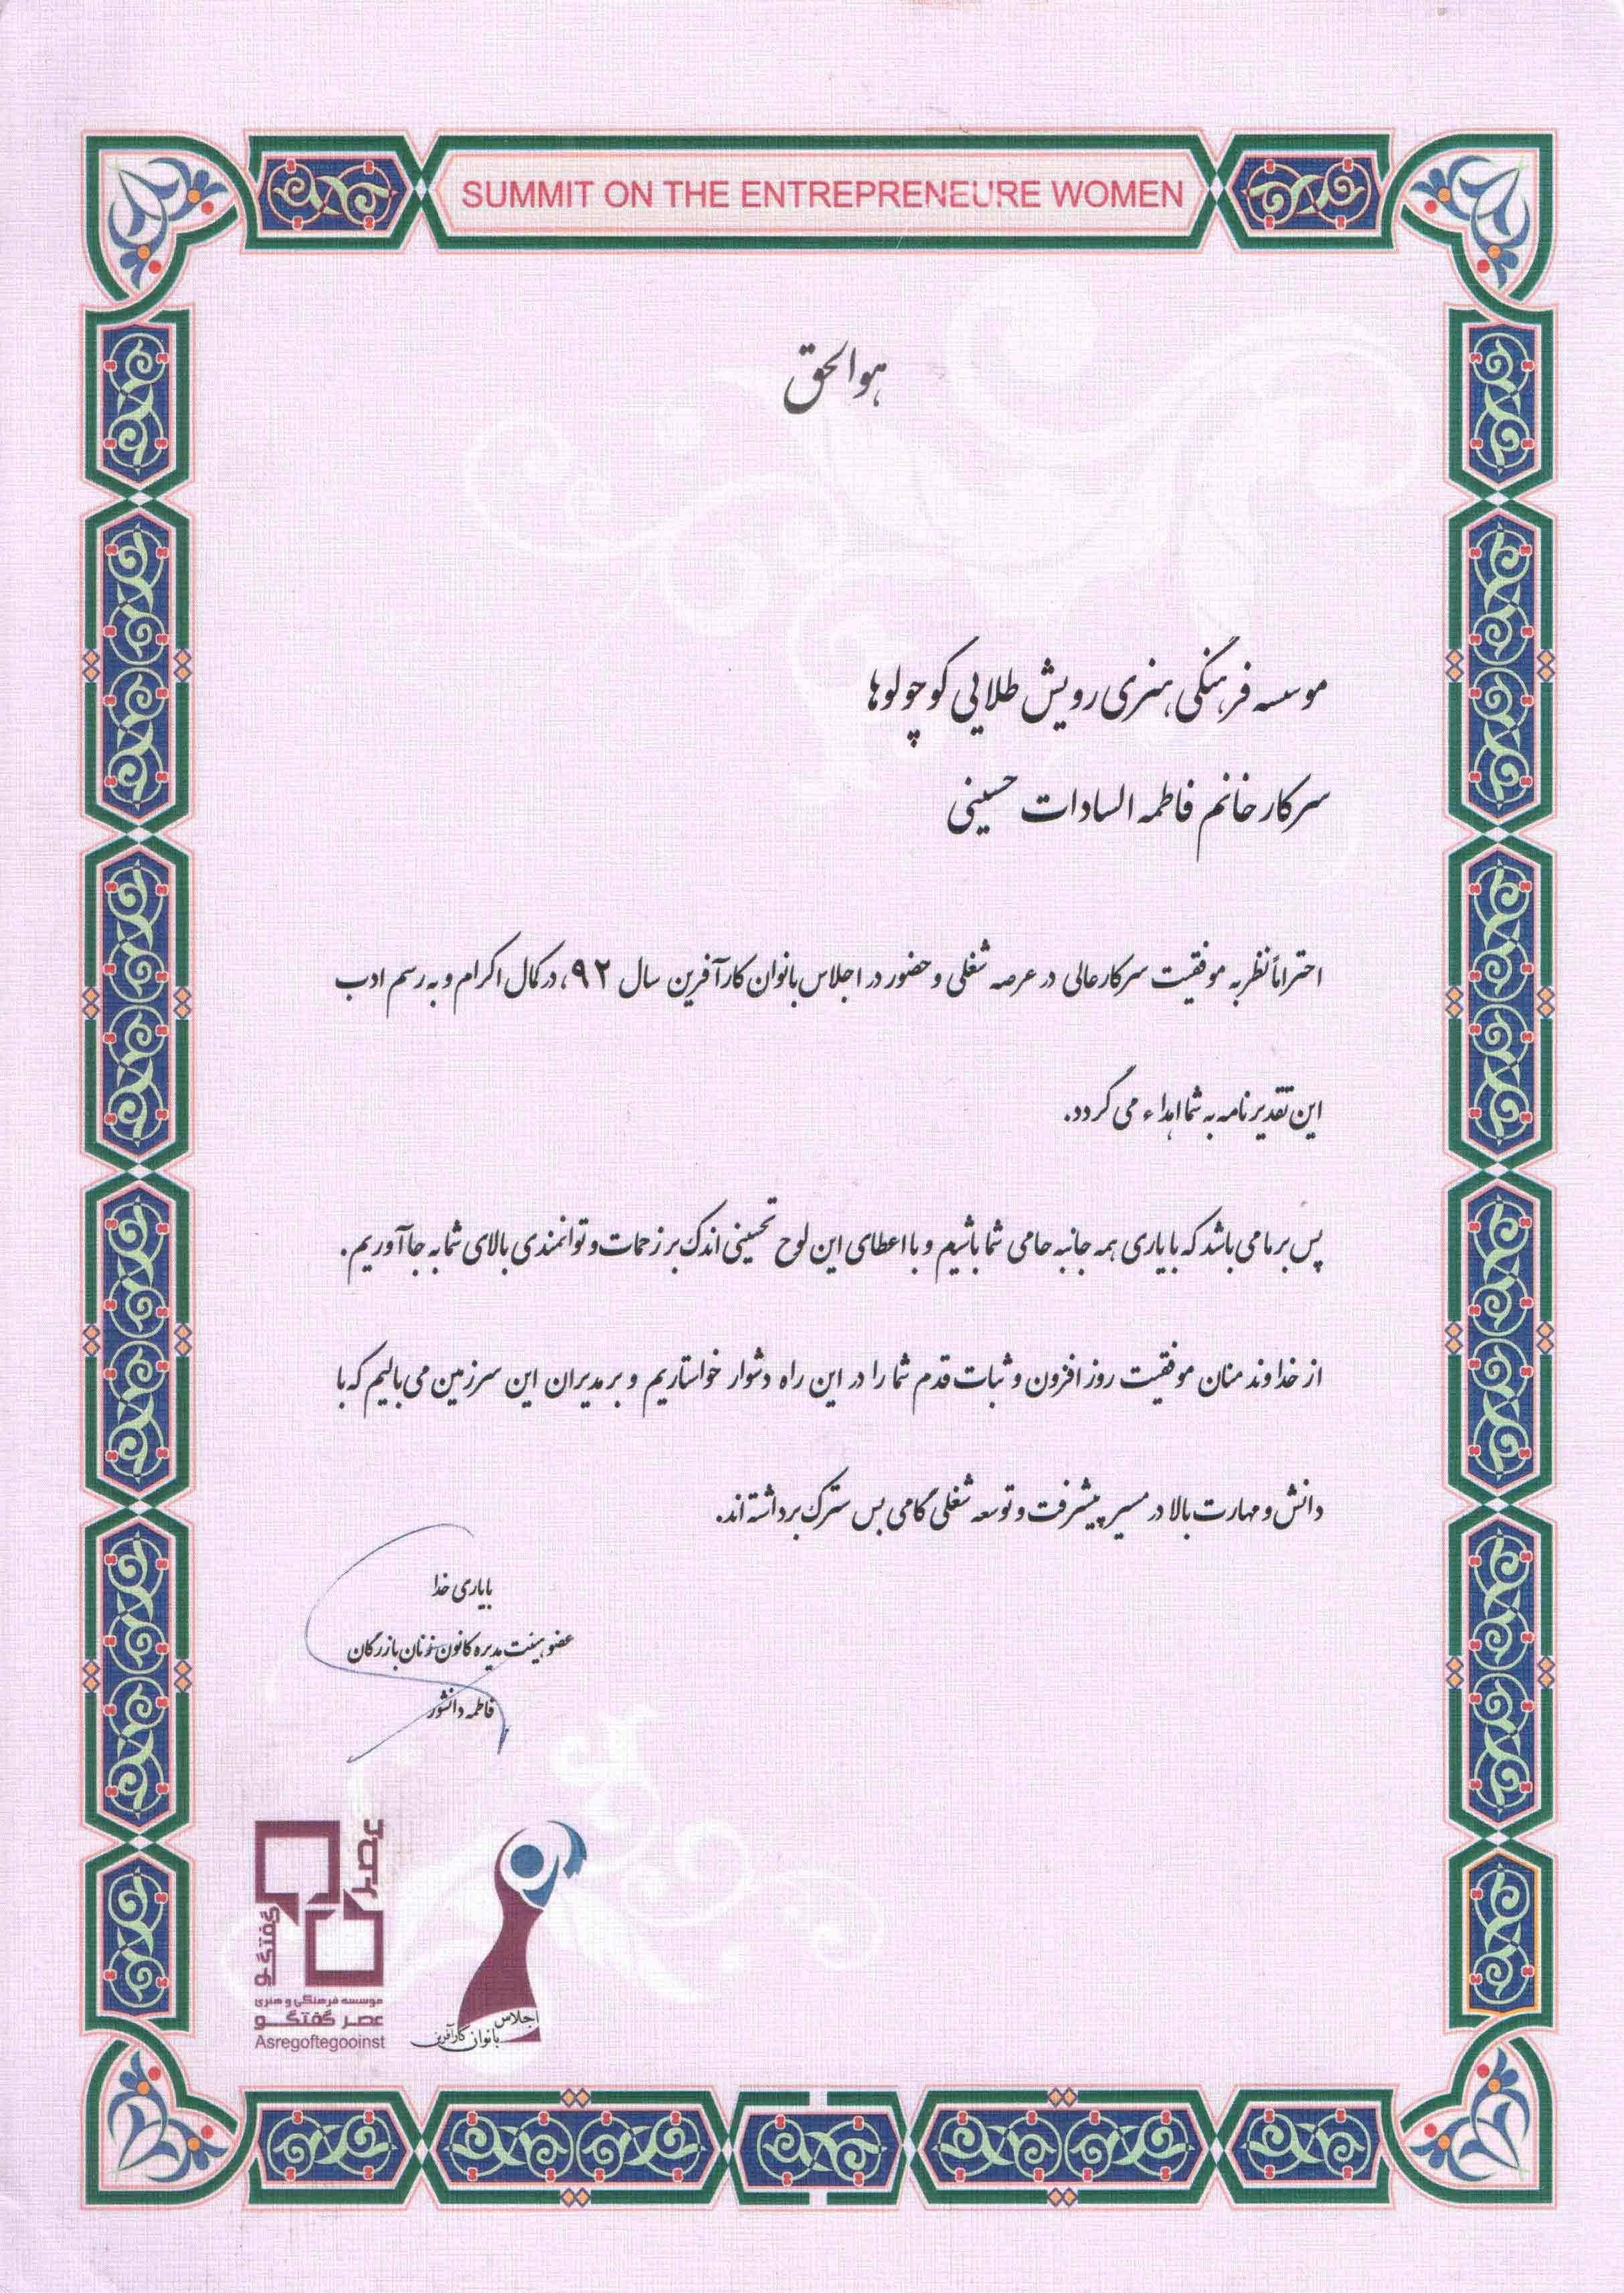 SUMMIT ON THE ENTREPRENEURE WOMEN
هوالحق
موسسه فرهنگی هنری رویش طلایی کوچولوها
سرکار خانم فاطمه السادات حسینی
احتراماً نظر به موفقیت سرکار عالی در عرصه شغلی و حضور در اجلاس بانوان کارآفرین سال ۹۲، در کمال اکرام و به رسم ادب
این تقدیرنامه به شما اهداء می گردد.
پس بر ما می باشد که با یاری همه جانبه حامی شما باشیم و با اعطای این لوح تحسینی اندک بر زحمات و توانمندی بالای شما به جا آوریم.
از خداوند منان موفقیت روز افزون و ثبات قدم شما را در این راه دشوار خواستاریم و بر مدیران این سرزمین می بالیم که با
دانش و مهارت بالا در مسیر پیشرفت و توسعه شغلی گامی بس سترک برداشته اند.
با یاری خدا
عضو هیئت مدیره کانون زنان بازرگان
فاطمه دانشور
عصر
گفتگو
موسسه فرهنگی و هنری
عصر گفتگو
Asregoftegooinst
اجلاس
بانوان کارآفرین